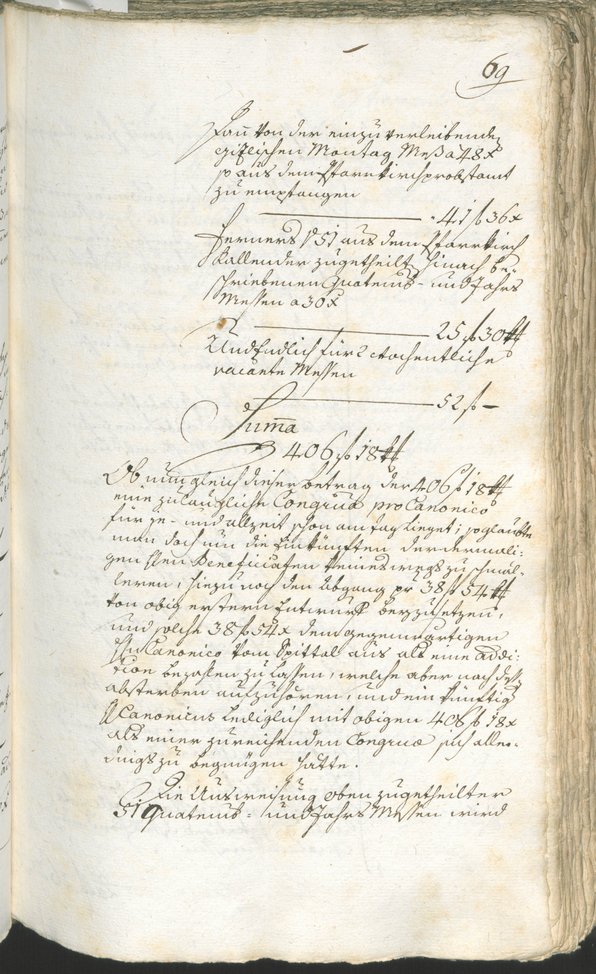 69
Dan von der einzuverleibende
gizlischen Montag Meß a 48 x
so aus dem Pfarrkirchprobstamt
zu empfangen
41 f 36 x
Ferners 51 aus dem Pfarrkirch
Kallender zugetheilt hinach be-
schriebenen Quatemb- und Jahrs
Messen a 30 x
25 f 30 x
Und Endlich für 2 wochentliche
vacante Messen
52 f –
Suma
406 f 18 x
Ob nun gleich dieser betrag der 406 f 18 x
eine zulängliche Congrua pro Canonico
für ge- und allzeit schon am tag lieget; so glaubte
man doch um die Einkünften der dermali-
gen Hen Beneficiaten keineswegs zu schmäl-
leren, hiezu noch den Abgang pr 38 f 54 x
von obig ersterm Entwurf beyzusetzen,
und solche 38 f 54 x dem gegenwärtigen
Hn Canonico vom Spittal aus als eine addi-
tion bezahlen zu lassen, welche aber nach deß
absterben aufzuhören, und ein künftig
Canonicus lediglich mit obigen 406 f 18 x
als einer zureichenden Congrua sich aller-
dings zu begnügen hätte.
Die Ausweisung oben zugetheilter
51 Quatemb- und Jahrs Messen wird